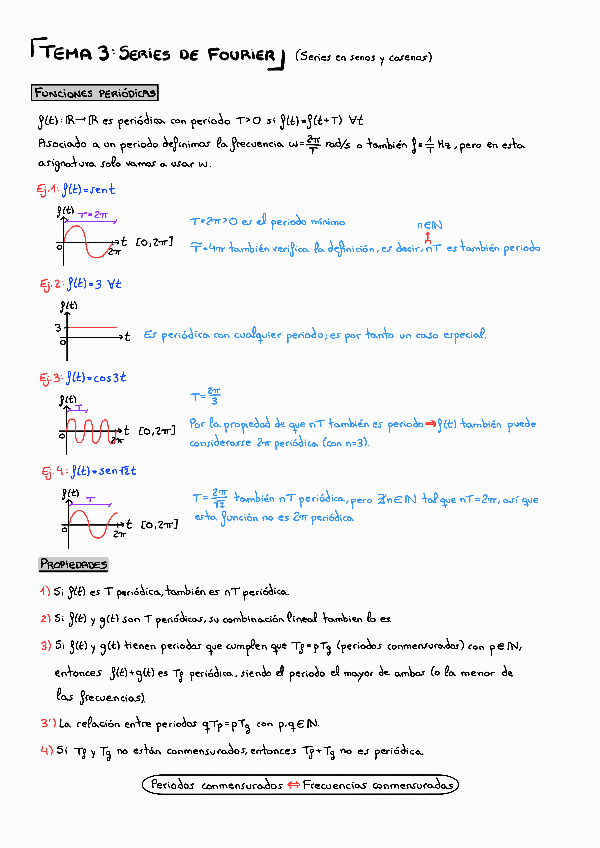 TEMA 3: SERIES DE FOURIER (Series en senos y cosenos)
FUNCIONES PERIÓDICAS
f(t): ℝ→ℝ es periódica con periodo T>0 si f(t)=f(t+T) ∀t
Asociado a un periodo definimos la frecuencia ω=2π/T rad/s o también f=1/T Hz, pero en esta
asignatura solo vamos a usar ω.
Ej.1: f(t)=sent
f(t) T=2π
0 2π t [0,2π]
T=2π>0 es el periodo mínimo n∈ℕ
T̃=4π también verifica la definición, es decir, nT es también periodo
Ej.2: f(t)=3 ∀t
f(t)
3
0 t
Es periódica con cualquier periodo; es por tanto un caso especial.
Ej.3: f(t)=cos3t
f(t) T
0 2π t [0,2π]
T=2π/3
Por la propiedad de que nT también es periodo ⇒ f(t) también puede
considerarse 2π periódica (con n=3).
Ej.4: f(t)=sen√2t
f(t) T
0 2π t [0,2π]
T=2π/√2 también nT periódica, pero ∄n∈ℕ tal que nT=2π, así que
esta función no es 2π periódica
PROPIEDADES
1) Si f(t) es T periódica, también es nT periódica.
2) Si f(t) y g(t) son T periódicas, su combinación lineal tambien lo es
3) Si f(t) y g(t) tienen periodos que cumplen que Tf=pTg (periodos conmensurados) con p∈ℕ,
entonces f(t)+g(t) es Tf periódica, siendo el periodo el mayor de ambas (o la menor de
las frecuencias).
3') La relación entre periodos qTf=pTg con p,q∈ℕ.
4) Si Tf y Tg no están conmensurados, entonces Tf+Tg no es periódica.
Periodos conmensurados ⇔ Frecuencias conmensuradas